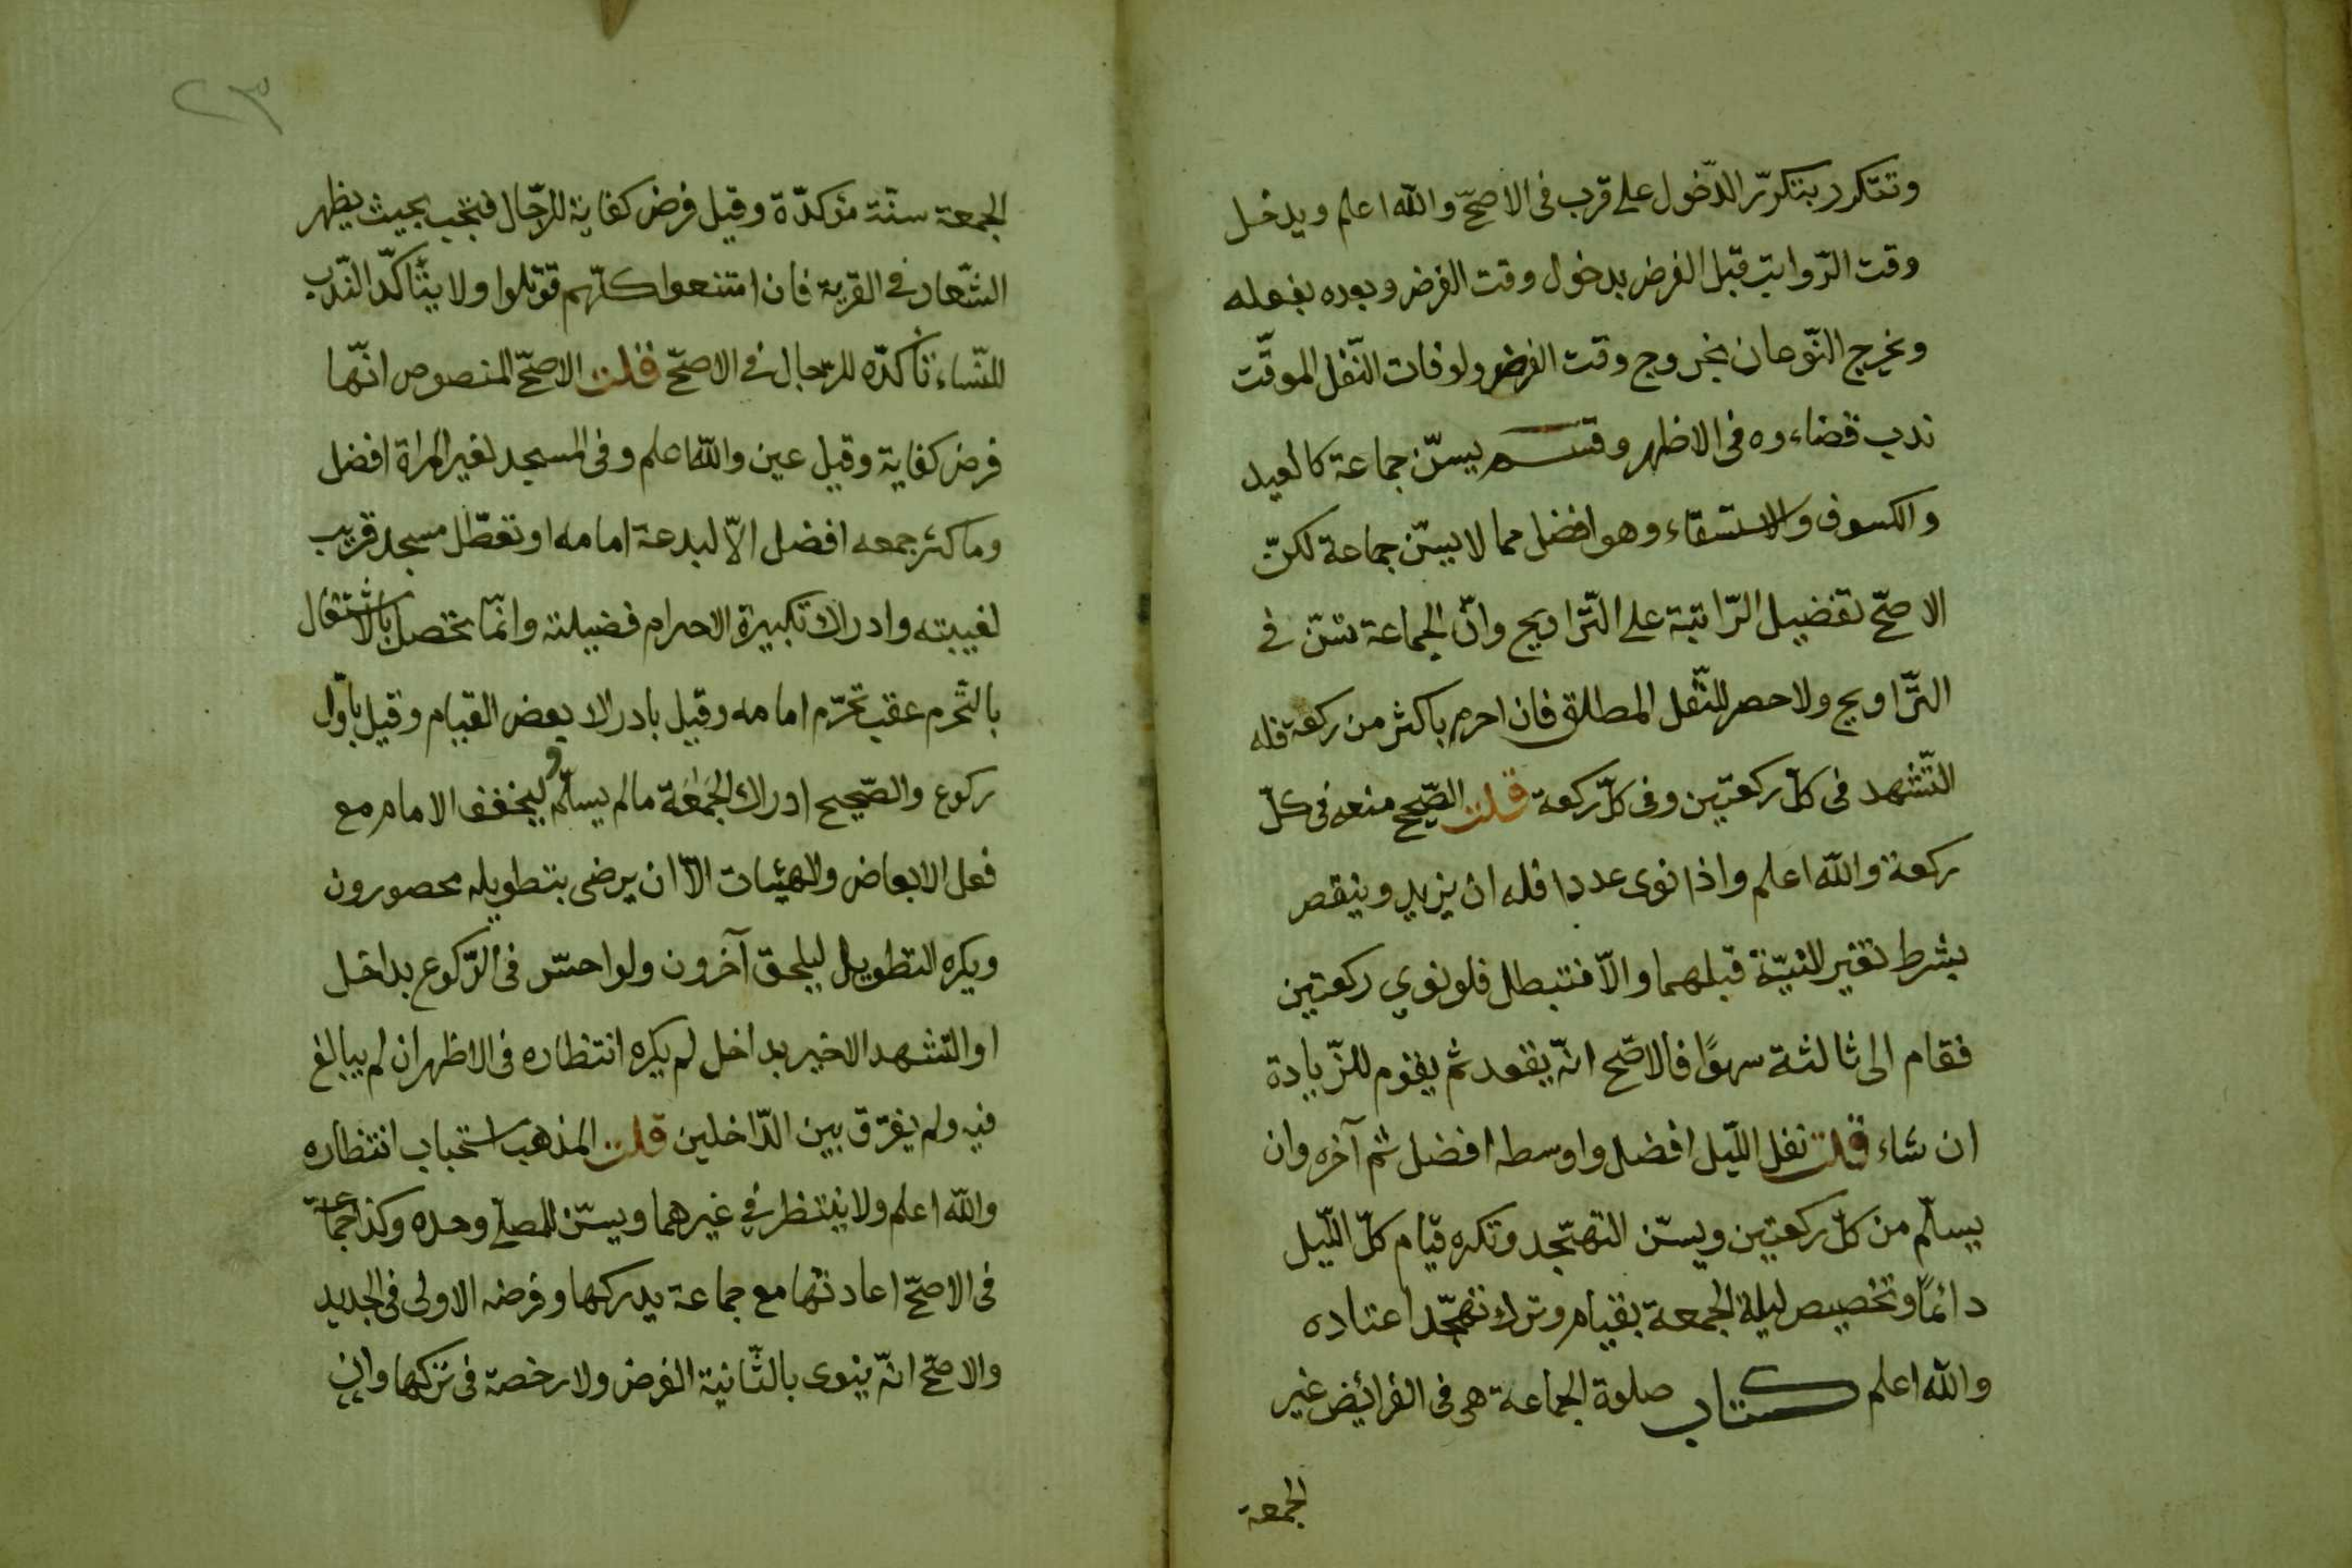 وتتكرر بتكرّر الدّخول على قرب فى الاصحّ والله اعلم ويدخل
وقت الرّواتب قبل الفرض بدخول وقت الفرض وبعده بفعله
ويخرج النّوعان بخروج وقت الفرض ولو فات النّفل الموقّت
ندب قضاءوه فى الاظهر وقسم يسنّ جماعة كالعيد
والكسوف والاستسقاء وهو افضل مما لا يسنّ جماعة لكنّ
الاصحّ تفضيل الرّاتبة على التّراويح وانّ الجماعة تسّن في
التّراويح ولا حصر للنّفل المطلق فان احرم باكثر من ركعة فله
التّشهد فى كلّ ركعتين وفى كلّ ركعة قلت الصّحيح منعه فى كلّ
ركعة والله اعلم واذا نوى عددا فله ان يزيد وينقص
بشرط تغير النيّة قبلهما والّا فتبطل فلو نوي ركعتين
فقام الى ثالثة سهوًا فالاصّح انّه يقعد ثم يقوم للزّيادة
ان شاء قلت نفل اللّيل افضل واوسطه افضل ثم آخره وان
يسلّم من كلّ ركعتين ويسّن التهجّد وتكره قيام كلّ اللّيل
دائمًا وتخصيص ليلة الجمعة بقيام وترك تهجّد اعتاده
والله اعلم كتاب صلوة الجماعة هى فى الفرائيض غير
الجمعة
٢٣
الجمعة سنّة مؤكدّة وقيل فرض كفاية للرّجال فتجب بحيث يظهر
الشّعار في القرية فان امتنعوا كلّهم قوتلوا ولا يتأكّد النّدب
للنّساء تأكدّه للرّجال في الاصحّ قلت الاصحّ المنصوص انّها
فرض كفاية وقيل عين والله اعلم وفى المسجد لغير المراة افضل
وما كثر جمعه افضل الّا لبدعة امامه او تعطّل مسجد قريب
لغيبته وادراك تكبيرة الاحرام فضيلته وانّما تحصل بالاشتغال
بالتّحرم عقب تحرّم امامه وقيل بادراك بعض القيام وقيل باوّل
ركوع والصّحيح ادراك الجماعة ما لم يسلّم وليخفف الامام مع
فعل الابعاض والهيئات الّا ان يرضى بتطويله محصورون
ويكره التطويل ليلحق آخرون ولو احسّ فى الرّكوع بداخل
او التّشهد الاخير بداخل لم يكره انتظاره فى الاظهر ان لم يبالغ
فيه ولم يفرّق بين الدّاخلين قلت المذهب استحباب انتظاره
والله اعلم ولا ينتظر في غيرهما ويسّن للمصلّي وحده وكذا جماعة
فى الاصحّ اعادتها مع جماعة يدركها وفرضه الاولى فى الجديد
والاصحّ انّه ينوى بالثّانية الفرض ولا رخصة فى تركها وان